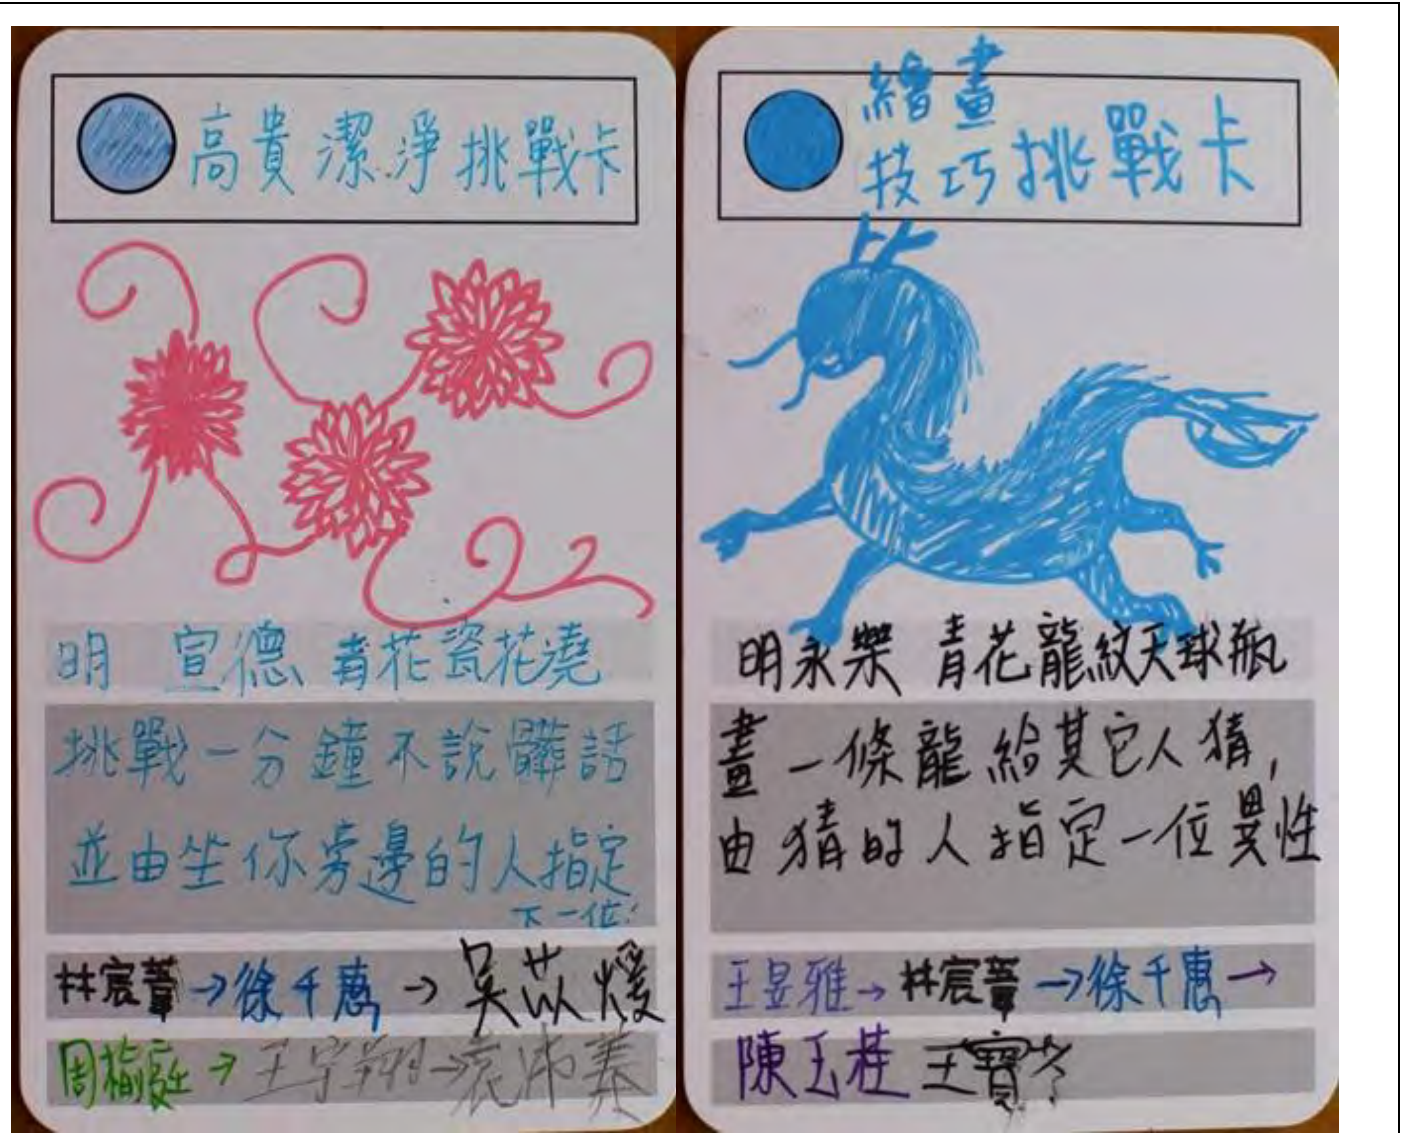 高貴潔淨挑戰卡
明 宣德 青花瓷花澆
挑戰一分鐘不說髒話
並由坐你旁邊的人指定
下一位!
林宸 →徐千惠 → 吳苡
周 → 王宇翔→袁沛蓁
繪畫
技巧挑戰卡
明永樂 青花龍紋天球瓶
畫一條龍給其它人猜,
由猜的人指定一位異性
王昱雅→林宸 →徐千惠→
陳玉桂 王寶岑